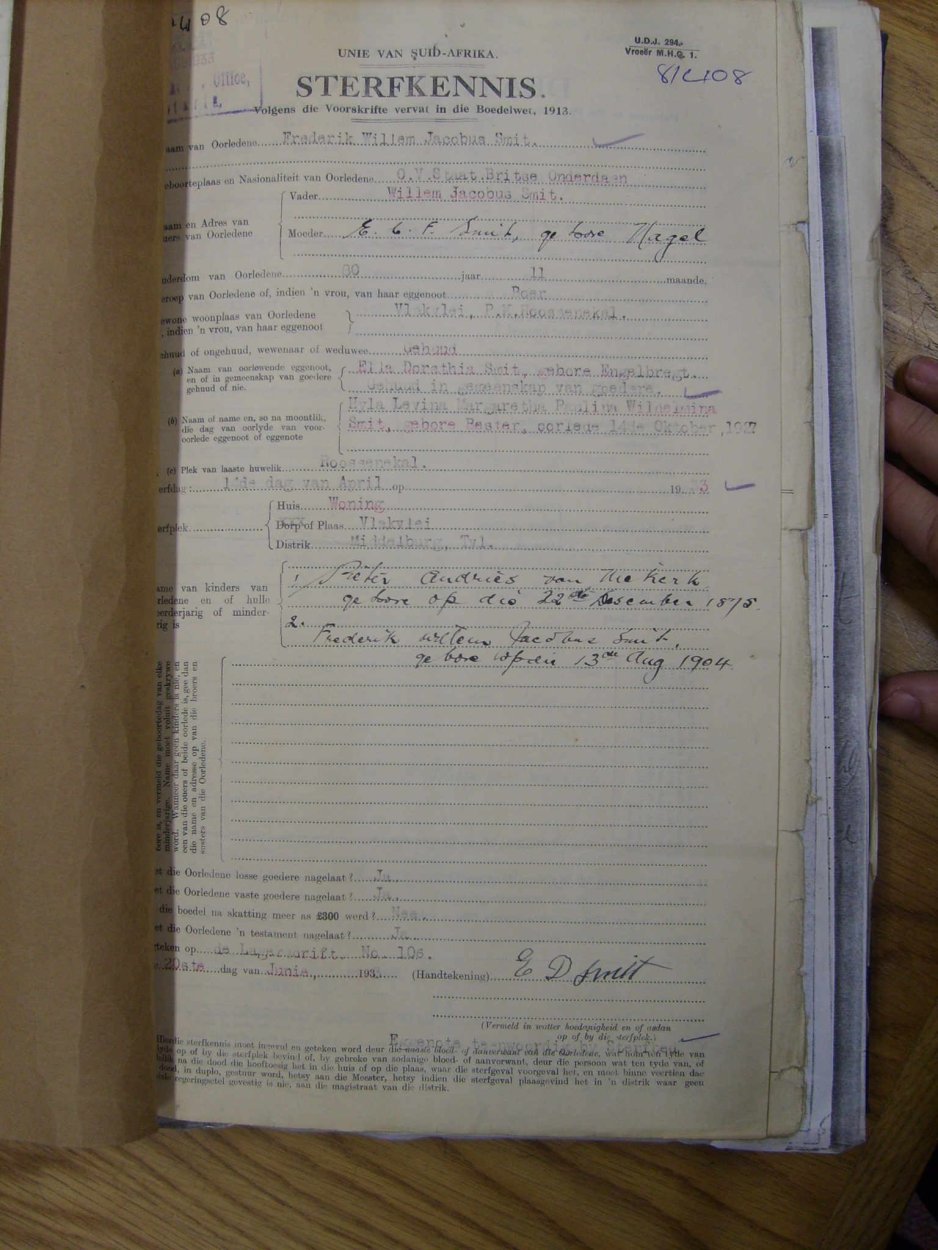 408
Office,
U.D.J. 294.
Vroeër M.H.G. 1.
81408
UNIE VAN SUID-AFRIKA.
STERFKENNIS.
Volgens die Voorskrifte vervat in die Boedelwet, 1913.
aam van Oorledene Frederik Willem Jacobus Smit.
eboorteplaas en Nasionaliteit van Oorledene O.V.Staat.Britse Onderdaan
aam en Adres van
ers van Oorledene
Vader Willem Jacobus Smit.
Moeder E. C. F. Smit, gebore Nagel
nderdom van Oorledene 60 jaar 11 maande.
eroep van Oorledene of, indien 'n vrou, van haar eggenoot Boer
ewone woonplaas van Oorledene
, indien 'n vrou, van haar eggenoot
Vlakvlei, P.K.Roossenekal.
ehuud of ongehuud, wewenaar of weduwee Gehuud
(a) Naam van oorlewende eggenoot,
en of in gemeenskap van goedere
gehuud of nie.
Ella Dorathia Smit, gebore Engelbregt.
Gehuud in gemeenskap van goedere.
(b) Naam of name en, so na moontlik,
die dag van oorlyde van voor-
oorlede eggenoot of eggenote
Hyla Levina Margaretha Paulina Wilhelmina
Smit, gebore Bester, oorlede 14de Oktober, 1927
(c) Plek van laaste huwelik Roossenekal.
erfdag: dag van April op 19 3
erfplek
Huis Woning
Dorp of Plaas Vlakvlei
Distrik Middelburg, Tvl.
ame van kinders van
rledene en of hulle
eerderjarig of minder-
rig is
1. Pieter Andries van Niekerk
gebore op die 22de Desember 1875.
2. Frederik Willem Jacobus Smit.
gebore op die 13de Aug 1904.
word. Wanneer daar geen kinders is nie, en
een van die ouers of beide oorlede is, gee dan
die name en adresse op van die broers en
susters van die Oorledene.
et die Oorledene losse goedere nagelaat? Ja.
et die Oorledene vaste goedere nagelaat? Ja.
die boedel na skatting meer as £300 werd? Nee.
et die Oorledene 'n testament nagelaat? Ja.
eteken op de Lagersdrift. No. 106.
20ste dag van Junie, 193 (Handtekening) E D Smit
(Vermeld in watter hoedanigheid en of aadan
op of by die sterfplek.)
Eggenote teenwoordig by sterfte.
Hierdie sterfkennis moet ingevul en geteken word deur die naaste bloed- of aanverwant van die Oorledene, wat hom ten tyde van
tyde op of by die sterfplek bevind of, by gebreke van sodanige bloed- of aanverwant, deur die persoon wat ten tyde van, of
na die dood die hooftoesig het in die huis of op die plaas, waar die sterfgeval voorgeval het, en moet binne veertien dae
dood, in duplo, gestuur word, hetsy aan die Meester, hetsy indien die sterfgeval plaasgevind het in 'n distrik waar geen
regeringsetel gevestig is nie, aan die magistraat van die distrik.